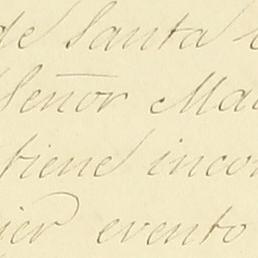 de Santa
Señor Ma
tiene inco
ier evento